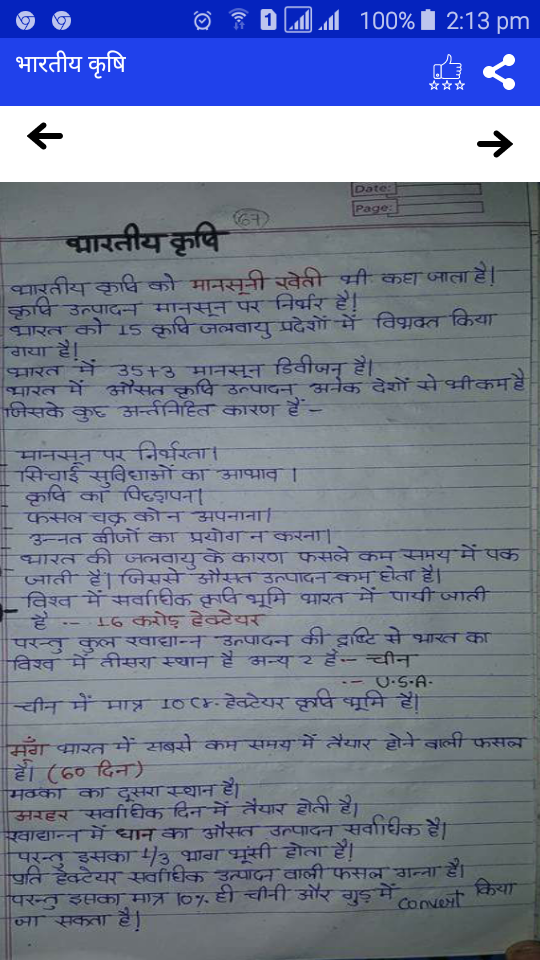 100% 2:13 pm
भारतीय कृषि
Date:
Page:
67
भारतीय कृषि
भारतीय कृषि को मानसूनी खेती भी कहा जाता है।
कृषि उत्पादन मानसून पर निर्भर है।
भारत को 15 कृषि जलवायु प्रदेशों में विभक्त किया
गया है।
भारत में 35+3 मानसून डिवीजन है।
भारत में औसत कृषि उत्पादन अनेक देशों से भी कम है
जिसके कुछ अर्न्तनिहित कारण हैं -
मानसून पर निर्भरता।
सिचाई सुविधाओं का आभाव ।
कृषि का पिछड़ापन।
फसल चक्र को न अपनाना।
उन्नत बीजों का प्रयोग न करना।
भारत की जलवायु के कारण फसले कम समय में पक
जाती है। जिससे औसत उत्पादन कम होता है।
विश्व में सर्वाधिक कृषि भूमि भारत में पायी जाती
है -- 16 करोड़ हेक्टेयर
परन्तु कुल खाद्यान्न उत्पादन की दृष्टि से भारत का
विश्व में तीसरा स्थान है अन्य 2 है -- चीन
-- U.S.A.
चीन में मात्र 10 Cr. हेक्टेयर कृषि भूमि है।
मूँग भारत में सबसे कम समय में तैयार होने वाली फसल
है। (60 दिन)
मक्का का दूसरा स्थान है।
अरहर सर्वाधिक दिन में तैयार होती है।
खाद्यान्न में धान का औसत उत्पादन सर्वाधिक है।
परन्तु इसका 1/3 भाग भूंसी होता है।
प्रति हेक्टेयर सर्वाधिक उत्पादन वाली फसल गन्ना है।
परन्तु इसका मात्र 10% ही चीनी और गुड़ में convert किया
जा सकता है।